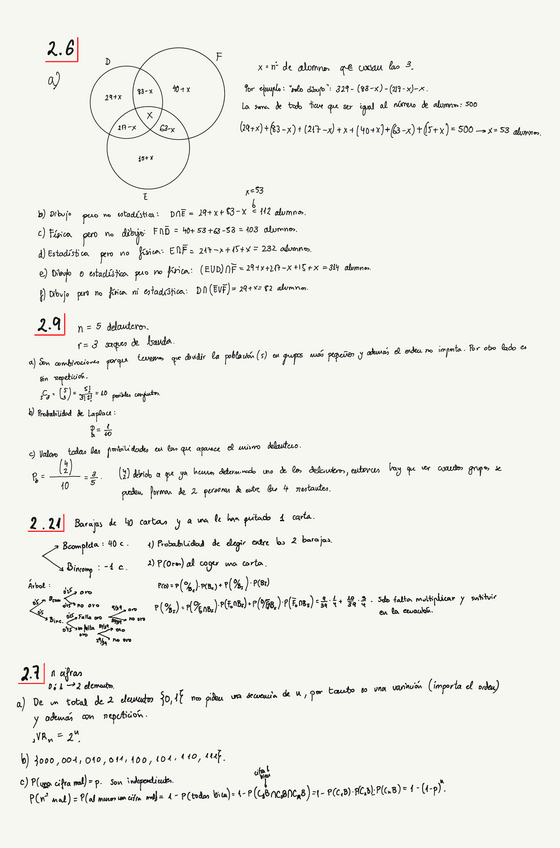 2.6
a)
D
F
29+x
83-x
40+x
X
217-x
63-x
15+x
E
x = nº de alumnos que cursan las 3.
Por ejemplo: "solo dibujo": 329 - (83-x) - (217-x) - x.
La suma de todo tiene que ser igual al número de alumnos: 500
(29+x)+(83-x)+(217-x)+x+(40+x)+(63-x)+(15+x) = 500 → x = 53 alumnos.
x=53
b) Dibujo pero no estadística: D∩E̅ = 29+x+83-x = 112 alumnos.
c) Física pero no dibujo: F∩D̅ = 40+53+63-53 = 103 alumnos.
d) Estadística pero no física: E∩F̅ = 217-x+15+x = 232 alumnos.
e) Dibujo o estadística pero no física: (E∪D)∩F̅ = 29+x+217-x+15+x = 314 alumnos.
f) Dibujo pero no física ni estadística: D∩(E∪F) = 29+x = 82 alumnos.
2.9
n = 5 delanteros.
r = 3 saques de banda.
a) Son combinaciones porque tenemos que dividir la población (5) en grupos más pequeños y además el orden no importa. Por otro lado es
sin repetición.
= 5!/3!2! = 10 posibles conjuntos
b) Probabilidad de Laplace:
P = 1/10
c) Valoro todas las posibilidades en las que aparece el mismo delantero.
(4 2)/10 = 3/5.
debido a que ya hemos determinado uno de los delanteros, entonces hay que ver cuántos grupos se
pueden formar de 2 personas de entre las 4 restantes.
2.21 Barajas de 40 cartas y a una le han quitado 1 carta.
Bcompleta: 40 c.
Bincomp: -1 c.
1) Probabilidad de elegir entre las 2 barajas.
2) P(Oro) al coger una carta.
Árbol:
oro
no oro
Binc.
Falla oro
oro
no oro
oro
no oro
Solo falta multiplicar y sustituir
en la ecuación.
2.7 n cifras
0 ó 1 → 2 elementos
a) De un total de 2 elementos {0,1} nos piden una secuencia de n, por tanto es una variación (importa el orden)
y además con repetición.
₂VRₙ = 2ⁿ.
b) {000, 001, 010, 011, 100, 101, 110, 111}.
c) P(una cifra mal) = p. Son independientes.
P(nº mal) = P(al menos una cifra mal) = 1 - P(todas bien) = 1 - P(C₁B∩C₂B∩CₙB) = 1 - P(C₁B)·P(C₂B)·P(CₙB) = 1 - (1-p)ⁿ.